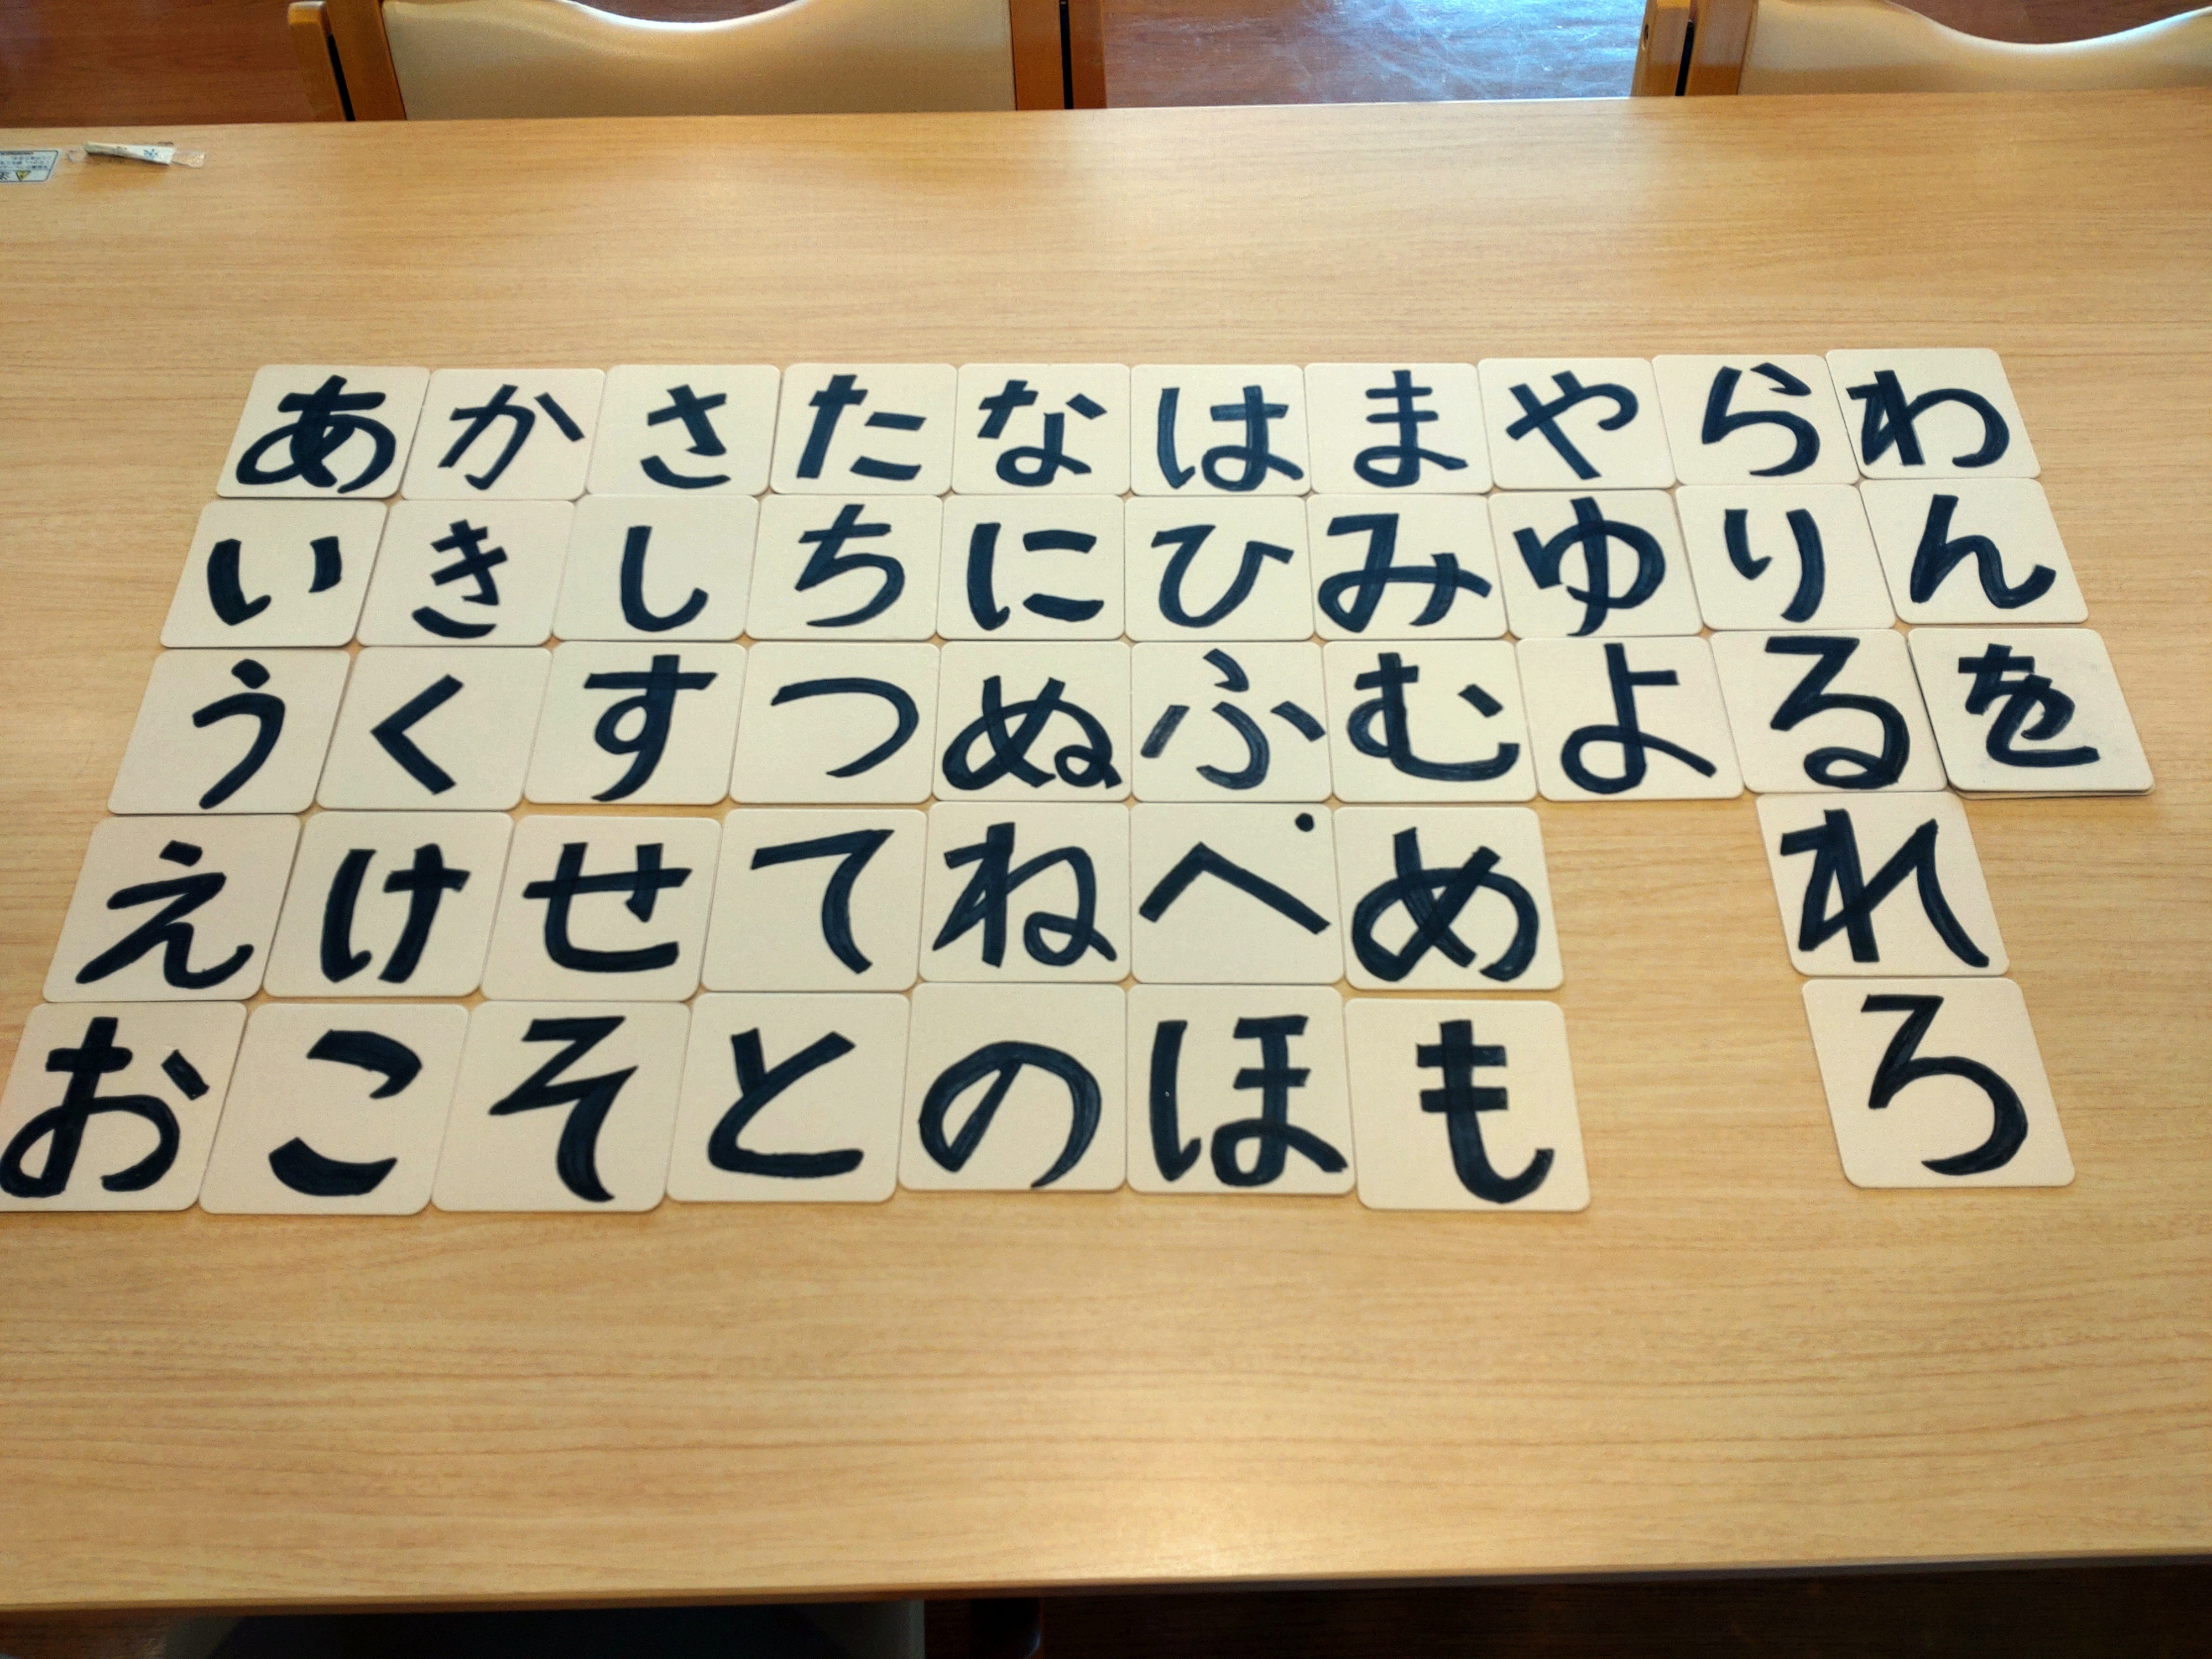 あかさたなはまやらわ
いきしちにひみゆりん
うくすつぬふむよるを
えけせてねぺめれ
おこそとのほもろ